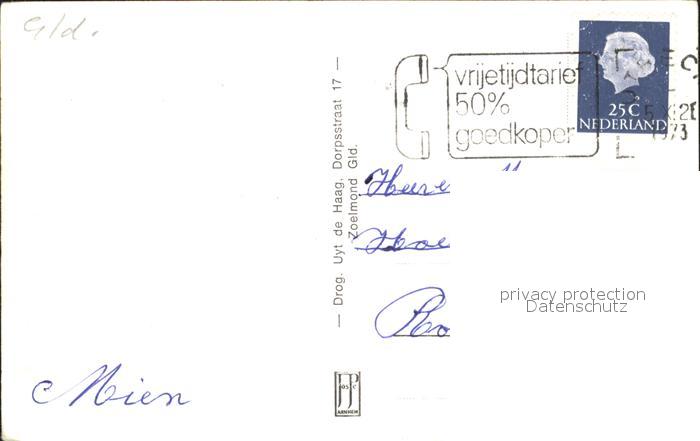 Gld.
vrijetijdtarief
50%
goedkoper
25 C
NEDERLAND
1973
— Drog. Uyt de Haag, Dorpsstraat 17 —
Zoelmond Gld.
privacy protection
Datenschutz
Mien
JosPé
ARNHEM